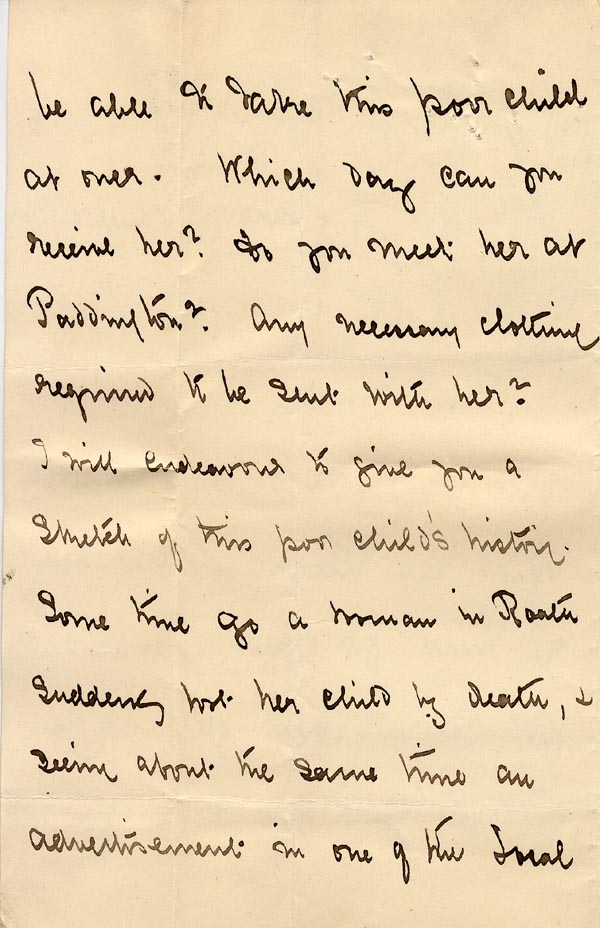 be able to take this poor child
at once. Which day can you
receive her? Do you meet her at
Paddington? Any necessary clothing
required to be sent with her?
I will endeavour to give you a
sketch of this poor child's history.
Some time ago a woman in Roath
suddenly lost her child by death, &
seeing about the same time an
advertisement in one of the local